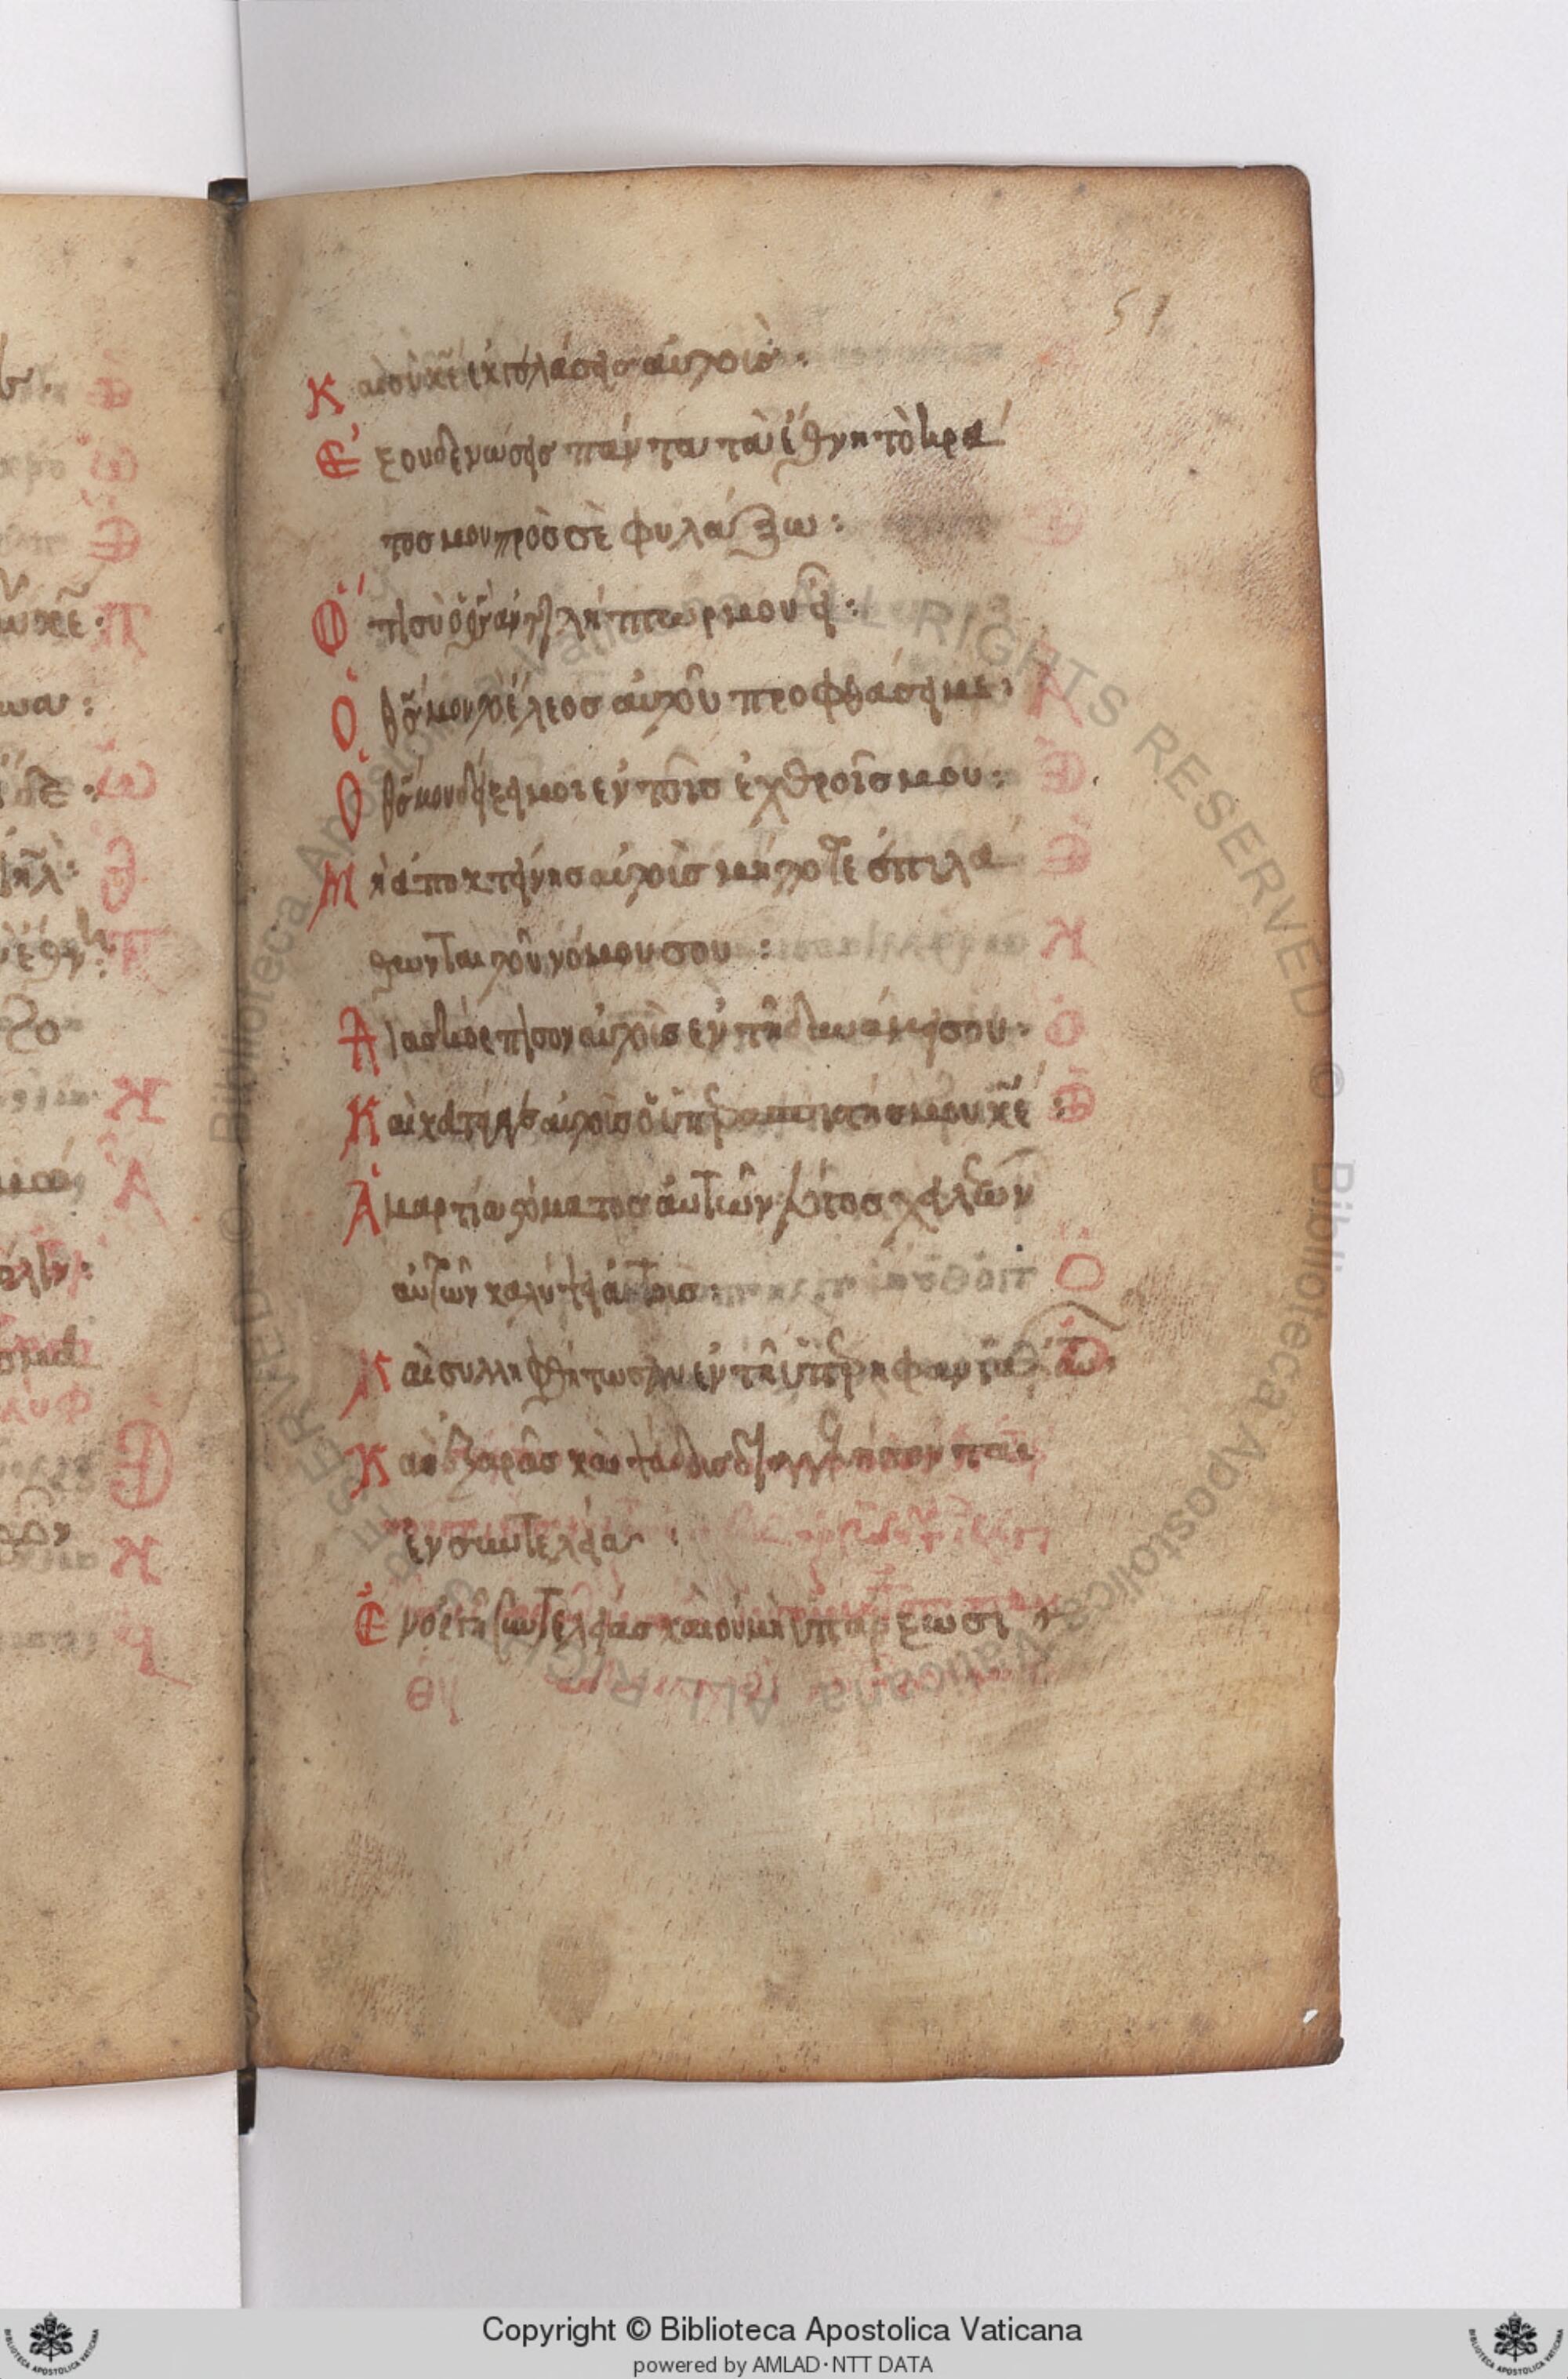 51
Καὶ σὺ κε ἐκγελάσεις αὐτοὺς:
Ἐξουδενώσεις πάντα τὰ ἔθνη τὸ κρά
τος μου πρὸς σὲ φυλάξω:
Ὅτι σὺ ὁ θς ἀντιλήπτωρ μου εἶ:
Ὁ θς μου τὸ ἔλεος αὐτοῦ προφθάσει με:
Ὁ θς μου δείξει μοι ἐν τοῖς ἐχθροῖς μου:
Μὴ ἀποκτείνης αὐτοὺς μήποτε ἐπιλά
θωνται τοῦ νόμου σου:
Διασκόρπισον αὐτοὺς ἐν τῆ δυνάμει σου:
Καὶ κατάγαγε αὐτοὺς ὁ ὑπερασπιστής μου κε:
Ἁμαρτία στόματος αὐτῶν λόγος χειλέων
αὐτῶν
Καὶ συλληφθήτωσαν ἐν τῆ ὑπερηφανία αὐτῶ:
Καὶ ἐξ ἀρᾶς καὶ ψεύδους διαγγελήσονται
ἐν συντελεία:
Ἐν ὀργῆ συντελείας καὶ οὐ μὴ ὑπάρξωσι
Copyright © Biblioteca Apostolica Vaticana
powered by AMLAD·NTT DATA